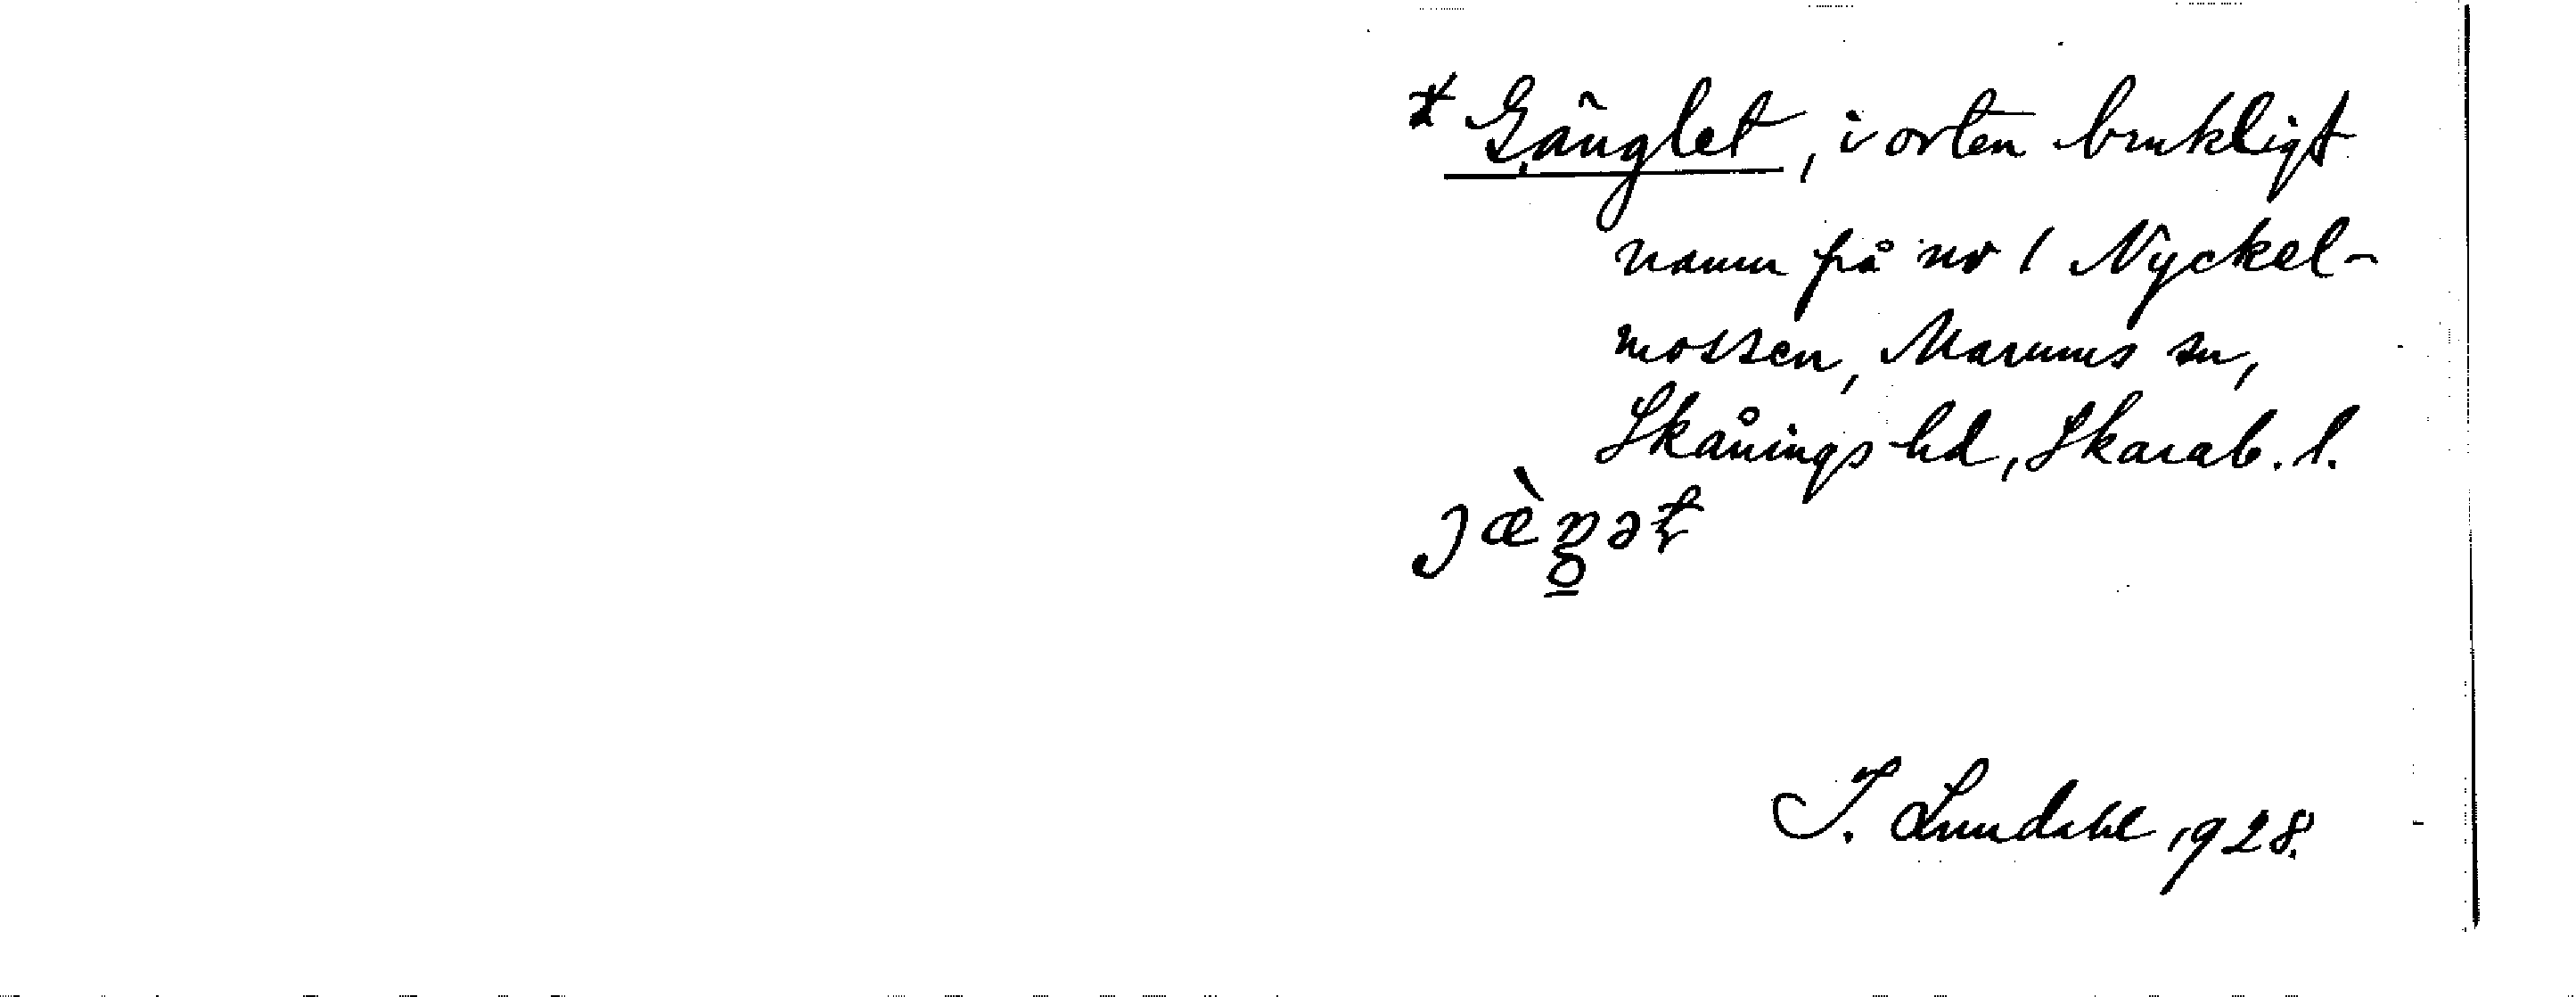 * Gänglet, i orten brukligt
namn på nr 1 Nyckel-
mossen, Marums sn,
Skånings hd, Skarab. l.
I. Lundahl 1928.